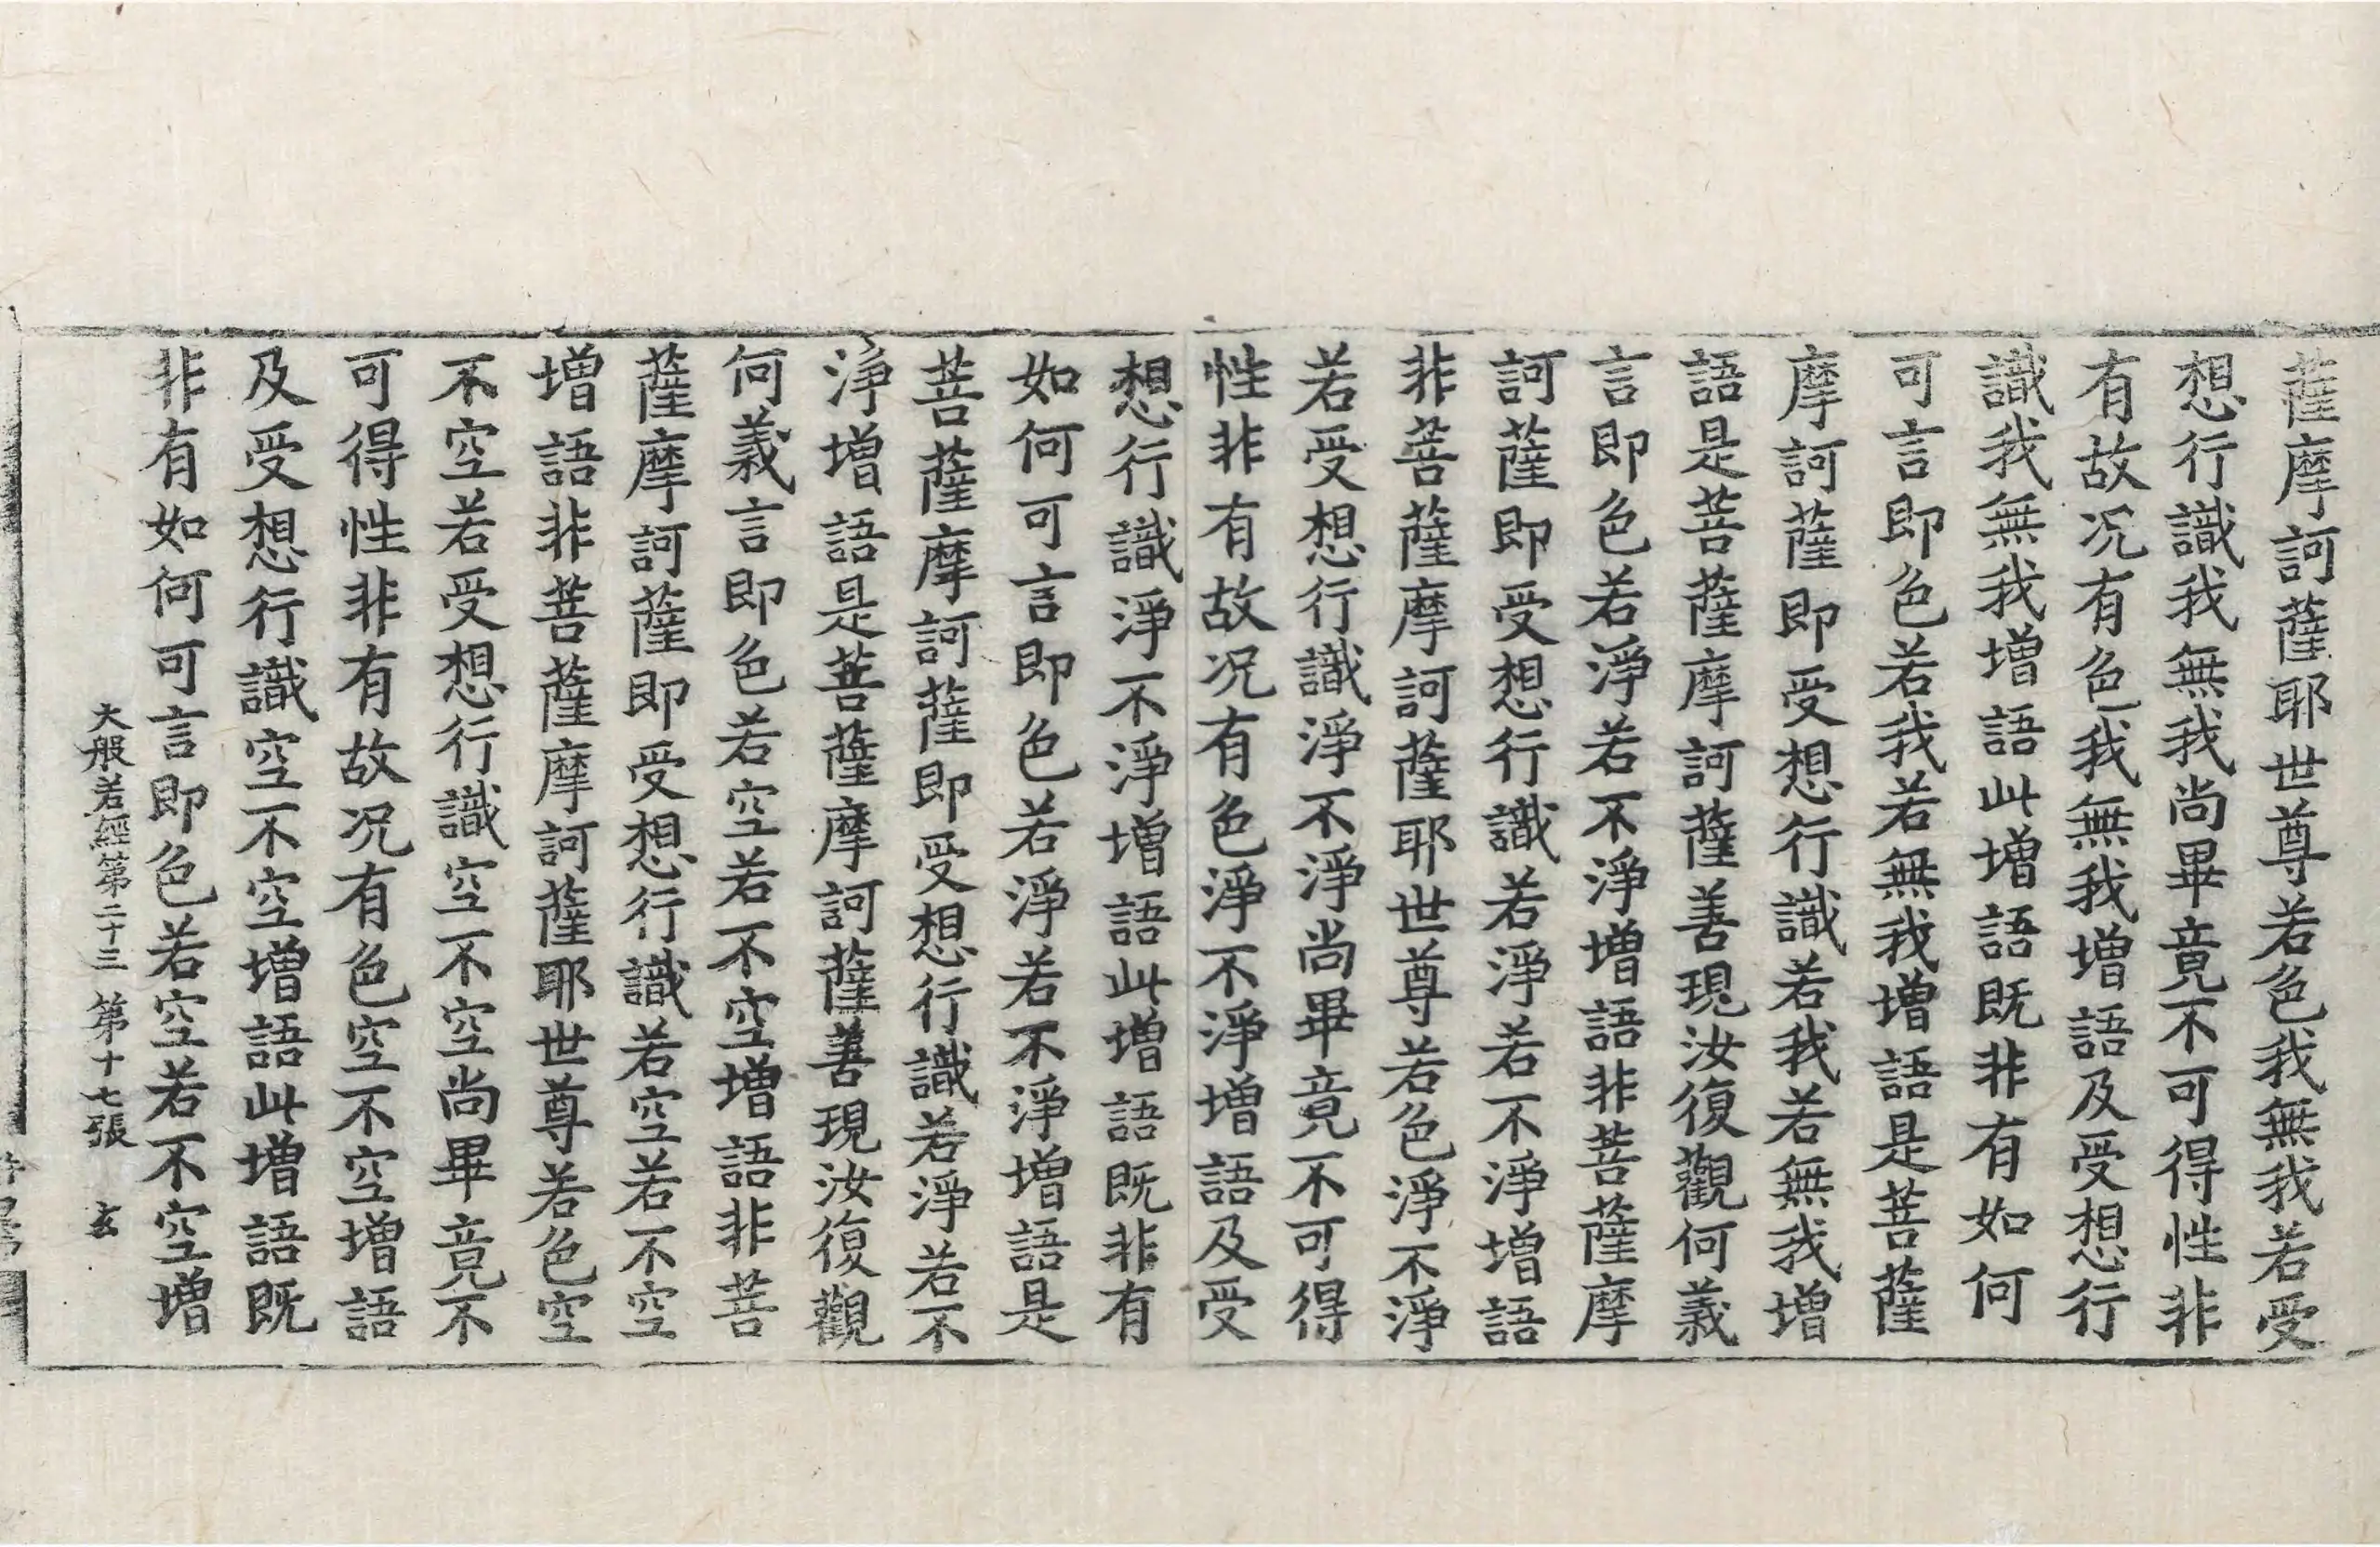 薩摩訶薩耶世尊若色我無我若受
想行識我無我尚畢竟不可得性非
有故况有色我無我增語及受想行
識我無我增語此增語既非有如何
可言即色若我若無我增語是菩薩
摩訶薩即受想行識若我若無我增
語是菩薩摩訶薩善現汝復觀何義
言即色若淨若不淨增語非菩薩摩
訶薩即受想行識若淨若不淨增語
非菩薩摩訶薩耶世尊若色淨不淨
若受想行識淨不淨尚畢竟不可得
性非有故况有色淨不淨增語及受
想行識淨不淨增語此增語既非有
如何可言即色若淨若不淨增語是
菩薩摩訶薩即受想行識若淨若不
淨增語是菩薩摩訶薩善現汝復觀
何義言即色若空若不空增語非菩
薩摩訶薩即受想行識若空若不空
增語非菩薩摩訶薩耶世尊若色空
不空若受想行識空不空尚畢竟不
可得性非有故况有色空不空增語
及受想行識空不空增語此增語既
非有如何可言即色若空若不空增
大般若經第二十三 第十七張 玄